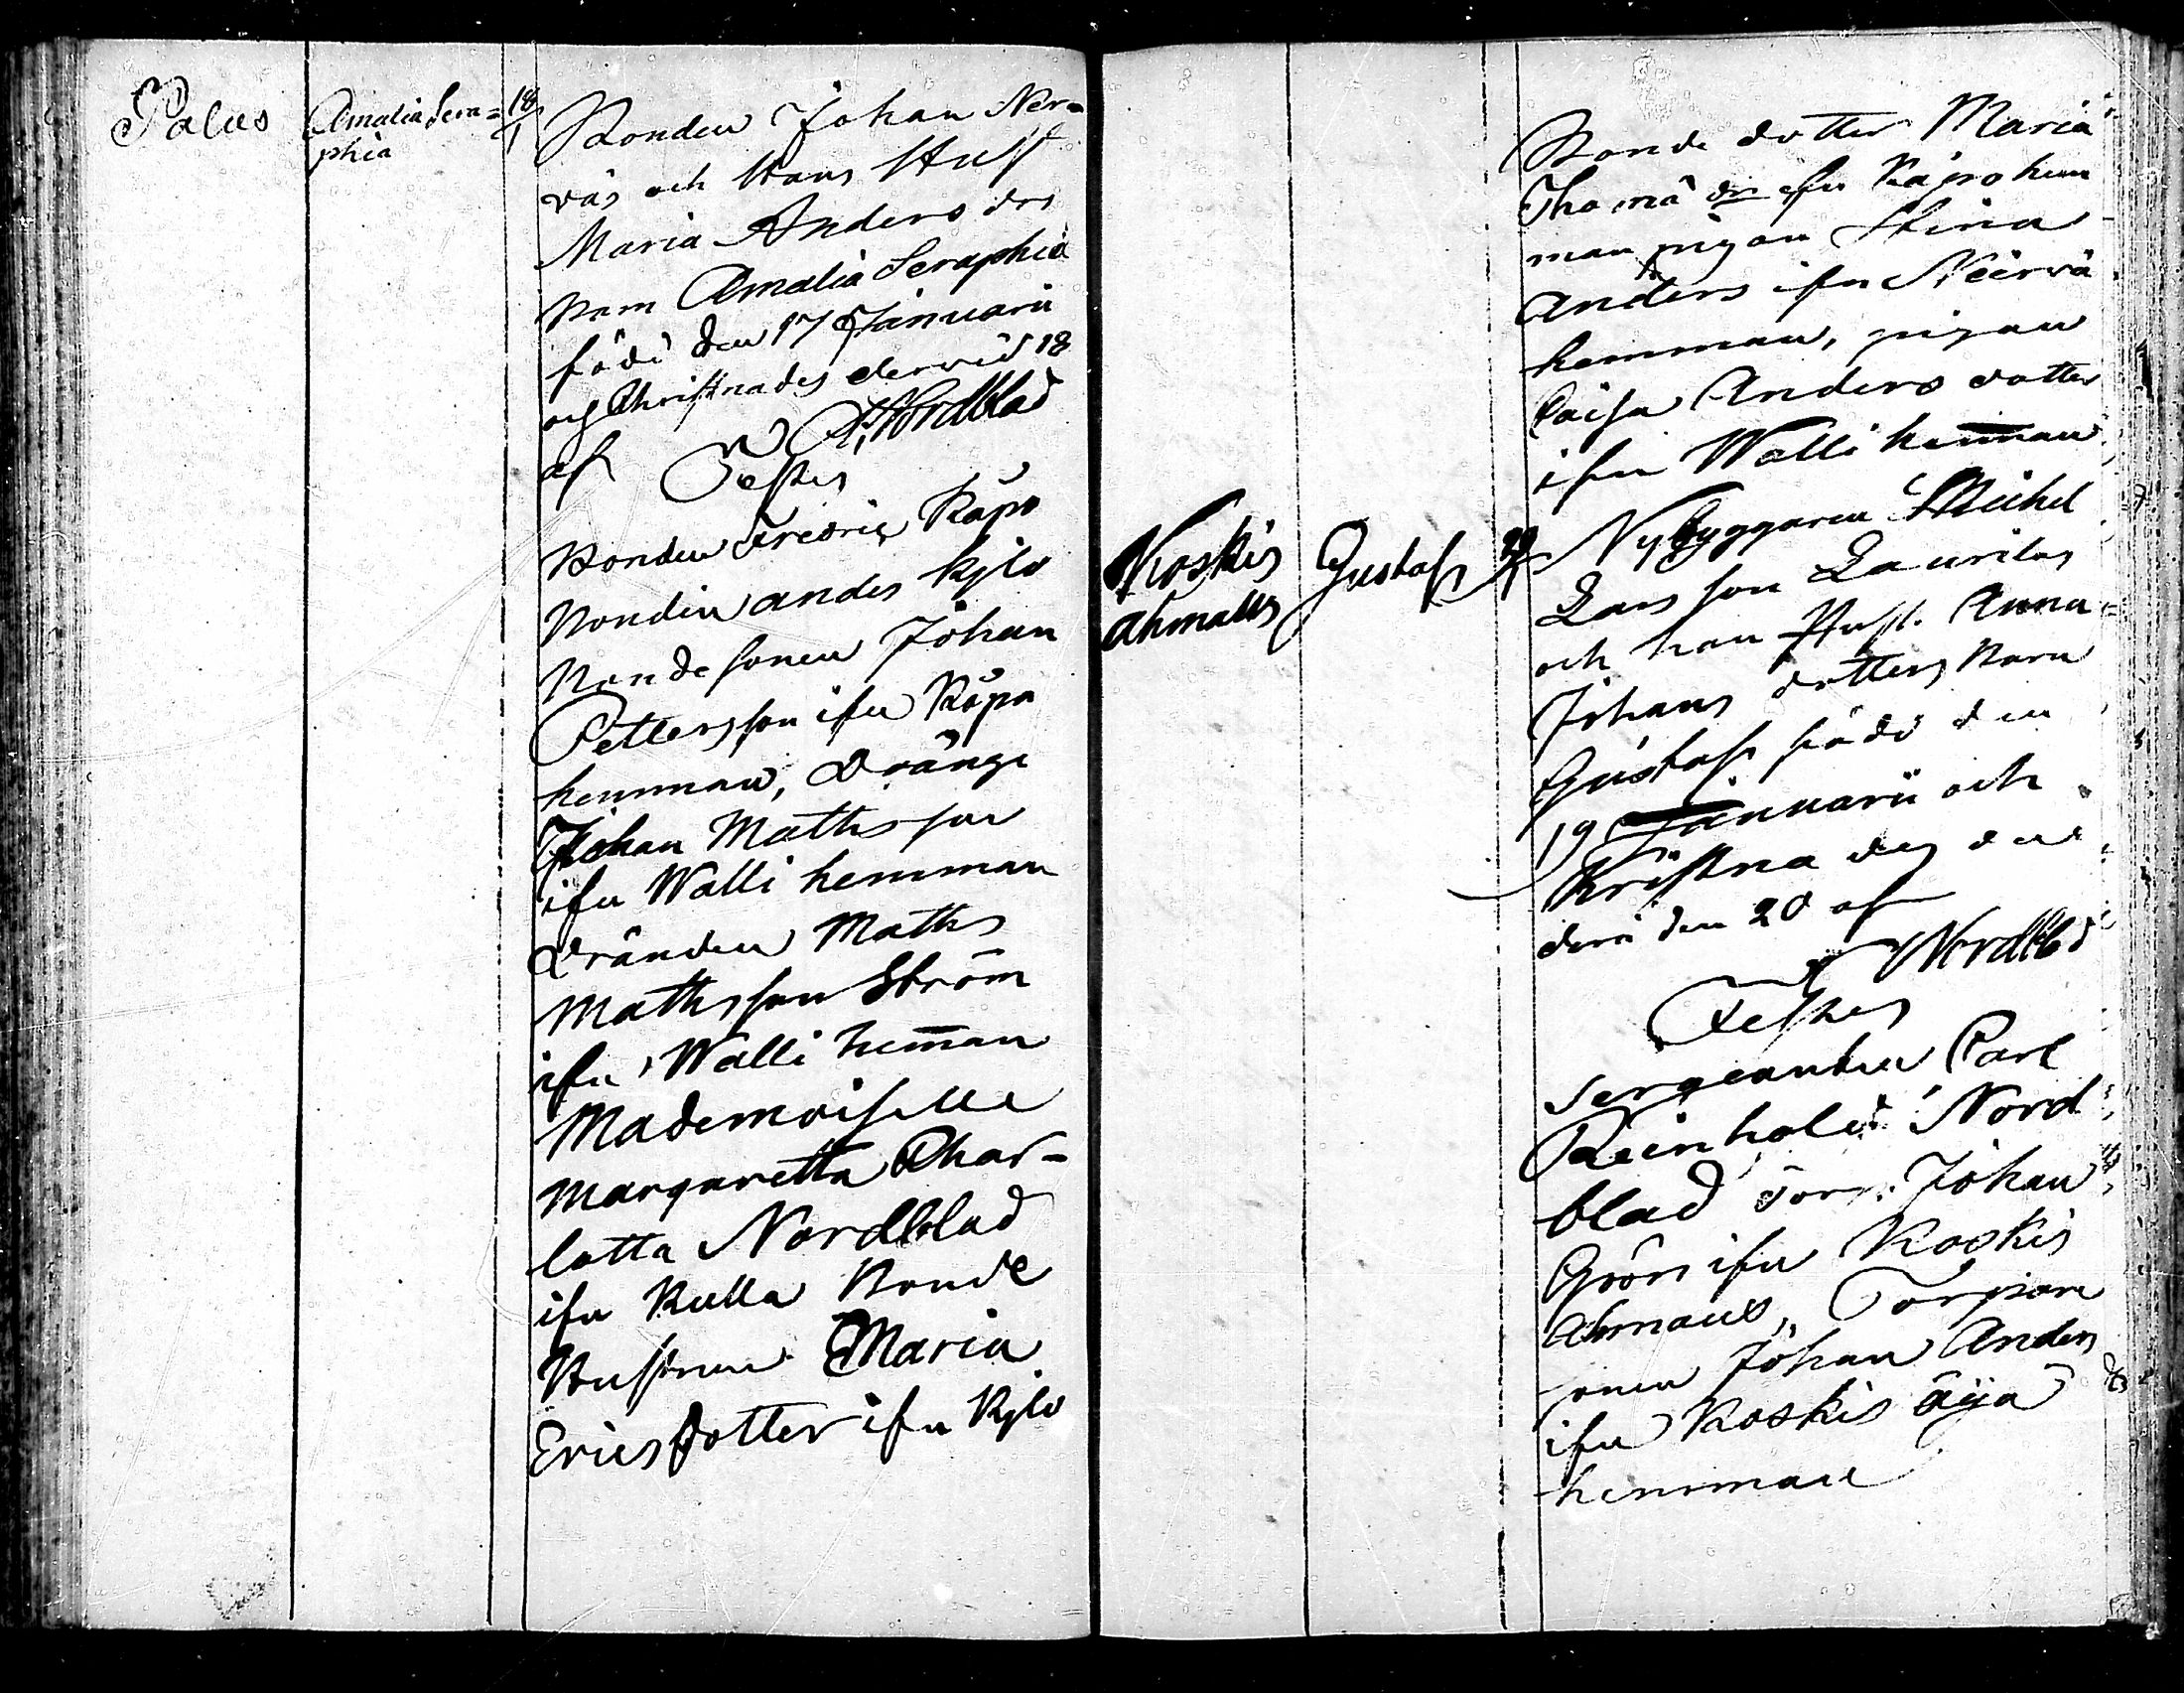 Palus
Amalia Sera=
phia
18/1
Bonden Johan Ner-
väs och Hans Hust
Maria Anders dr
Barn Amalia Seraphia
född den 17 Januarii
och Christnades dervid 18
af Nordblad
Testes
Bonden Fredric Räpo
Bondin andes Kylö
Bonde sonen Johan
Pettersson ifrn Röpo
hemman, Drängr
Johan Mathsson
ifrn Walli hemman
Drängen Maths
Mathsson Ström
ifrn Walli hem̄an
Mademoiselle
Margaretta Char-
lotta Nordblad
ifrn Kulla Bonde
Hustrun Maria
Ericsdotter ifrn Kylö
Bonde dotter Maria
Thoma dr ifrn Räpo hem
man pigan Stina
Anders dr ifrn Neervä
hemman, pigan
Caisa Anders dotter
ifrn Walli hem̄an
Koskis
ahmaus
Gustaf
20/1
Nybyggaren Michel
Larsson Laurilas
och han Hust. Anna
Johans dotters Barn
Gustaf född den
19 Januarii och
Kristna des der
den 20 af
Nordblad
Testes
Sergeanten Carl
Reinhold Nord
blad Torp. Johan
Grön ifrn Koskis
Ahmaus, Torpare
sonen Johan Anders
ifrn Koskis äijä
hemman